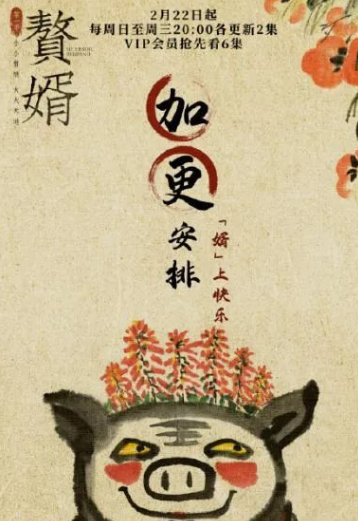 2月22日起
每周日至周三20:00各更新2集
VIP会员抢先看6集
赘婿
加更
安排
「婿」上快乐
王